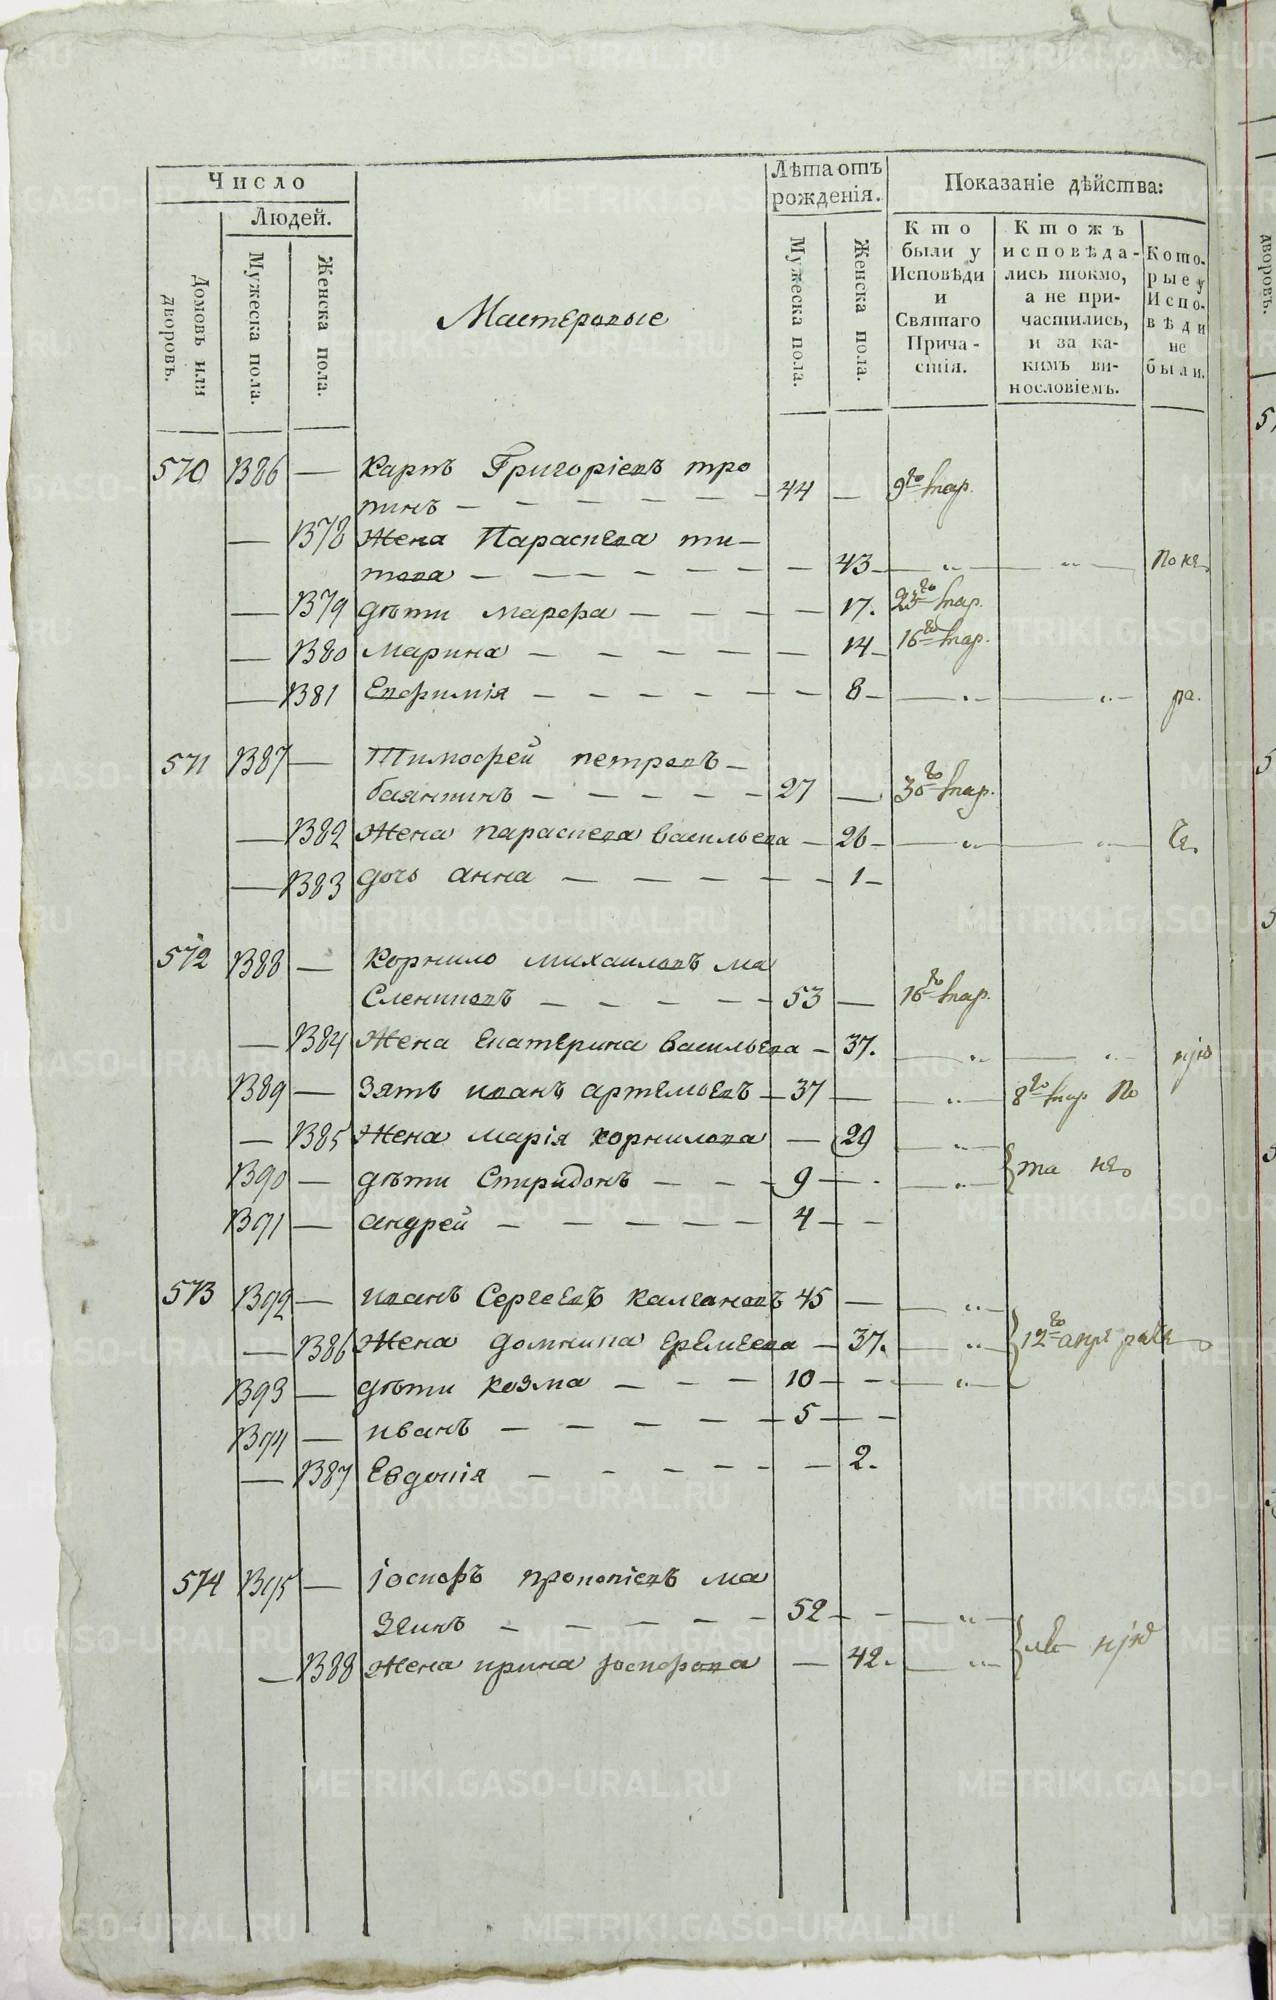 Число
Людей.
Домовъ или дворовъ.
Мужеска пола.
Женска пола.
Мастеровые
Лѣта отъ рожденія.
Мужеска пола.
Женска пола.
Показаніе дѣйства:
Кто были у Исповѣди и Святаго Причастія.
Ктожъ исповѣдались токмо, а не причастились, и за какимъ винословіемъ.
Которые у Исповѣди не были.
570 1386 — Карпъ Григоріевъ тро
пинъ — 44 — 9го мар.
— 1378 Жена Параскева ти
това — 43 —
— 1379 дѣти марфа — 17. 23го мар.
— 1380 марина — 14 — 16го мар.
— 1381 Евфимія — 8 —
571 1387 — Тимофей петровъ —
27 — 30го мар.
— 1382 Жена параскева васильева — 26 —
— 1383 дочь анна — 1 —
572 1388 — Корнило михаиловъ ма
слениковъ — 53 — 16го мар.
— 1384 Жена екатерина васильева — 37.
1389 — Зять иванъ артемьевъ — 37 — 8го мар
— 1385 Жена марія корнилова — 29
1390 — дѣти Спиридонъ — 9 —
1391 — андрей — 4 —
573 1392 — иванъ Сергеевъ калгановъ 45 —
— 1386 Жена домникиа еремеева — 37. 12го апр
1393 — дѣти козма — 10 —
1394 — иванъ — 5 —
— 1387 Евдокія — 2.
574 1395 — Іосифъ прокопіевъ ма
зеинъ — 52 —
— 1388 Жена ирина іосифова — 42.
METRIKI.GASO-URAL.RU